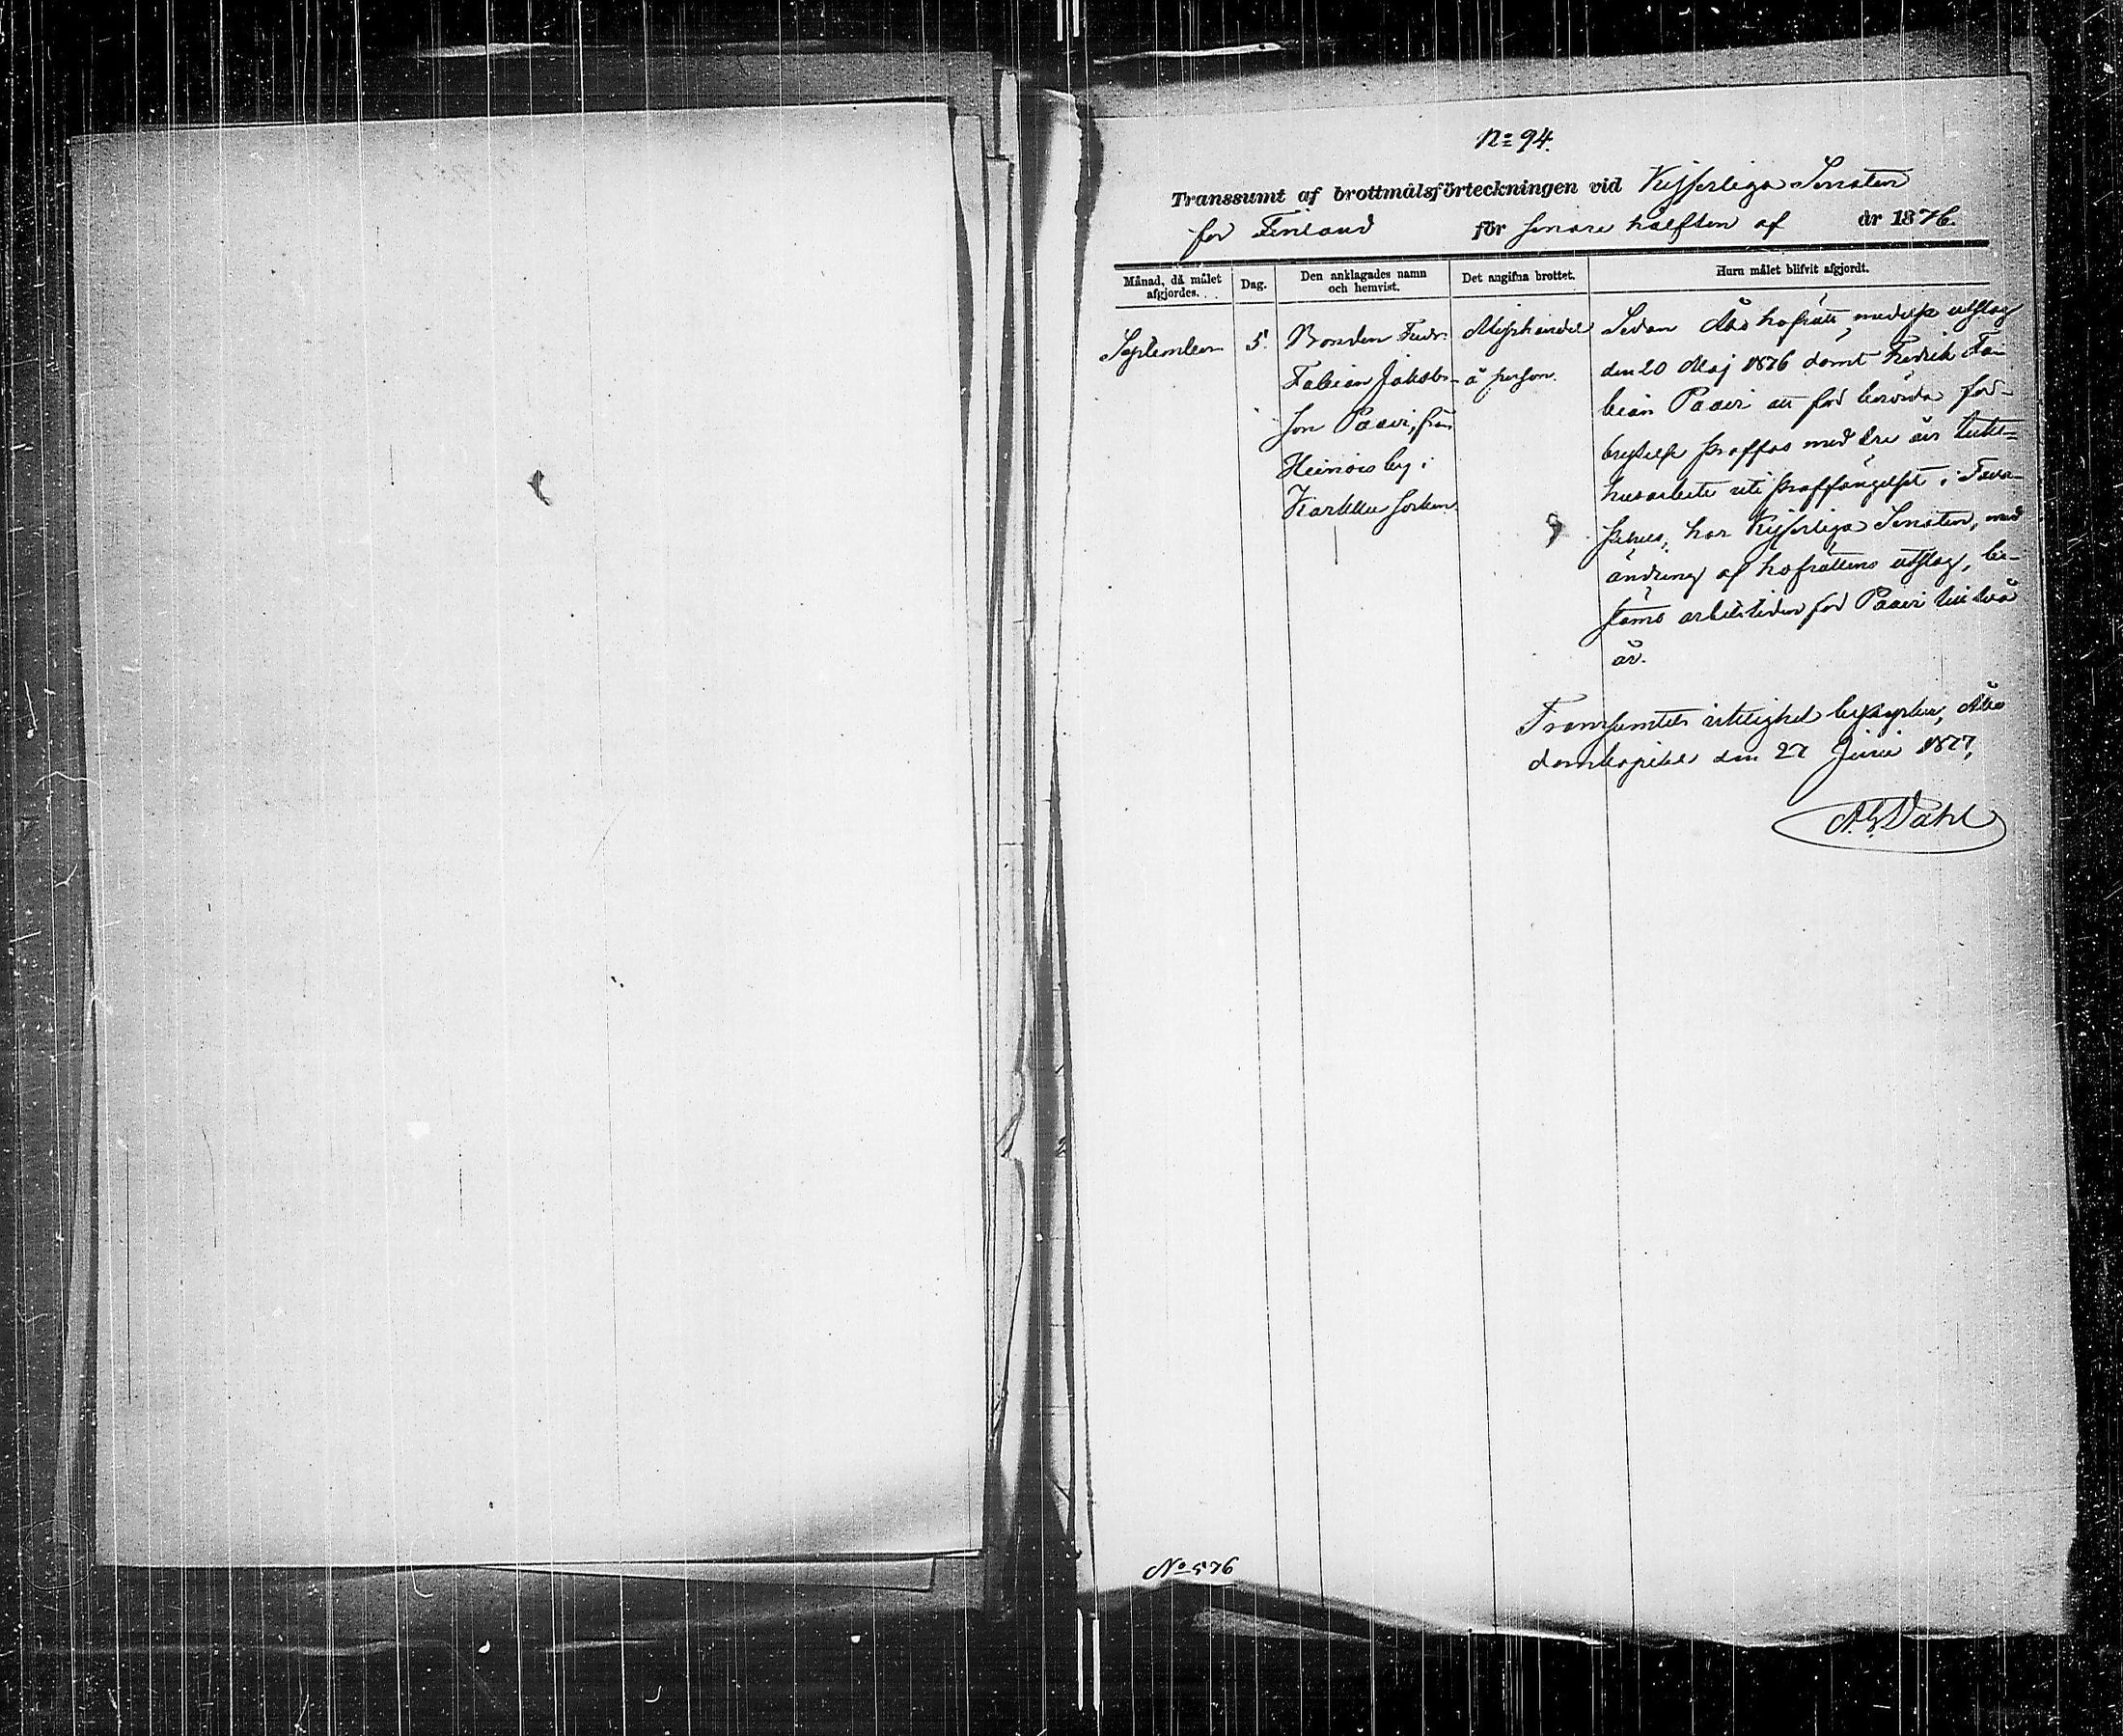 No 94.
Transsumt af brottmålsförteckningen vid Kejserliga Senaten
för Finland för senare hälften af år 1876.
Månad, då målet afgjordes.
Dag.
Den anklagades namn och hemvist.
Det angifna brottet.
Huru målet blifvit afgjordt.
September
5.
Bonden Fredr.
Fabian Jakobs-
son Paavi, från
Heinois by i
Karkku socken.
Misshandel
å person.
Sedan Åbo hofrätt, medelst utslag
den 20 Maj 1876 dömt Fredrik Fa-
bian Paavi att för berörda för-
brytelse straffas med tre års tukt-
husarbete uti straffängelset i Tava-
stehus, har Kejserliga Senaten, med
ändring af hofrättens utslag, be-
stämt arbetstiden för Paavi till två
år.
Transsumtets riktighet bestyrker, Åbo
domkapitel den 27 Junii 1877,
A. G. Dahl
No 576